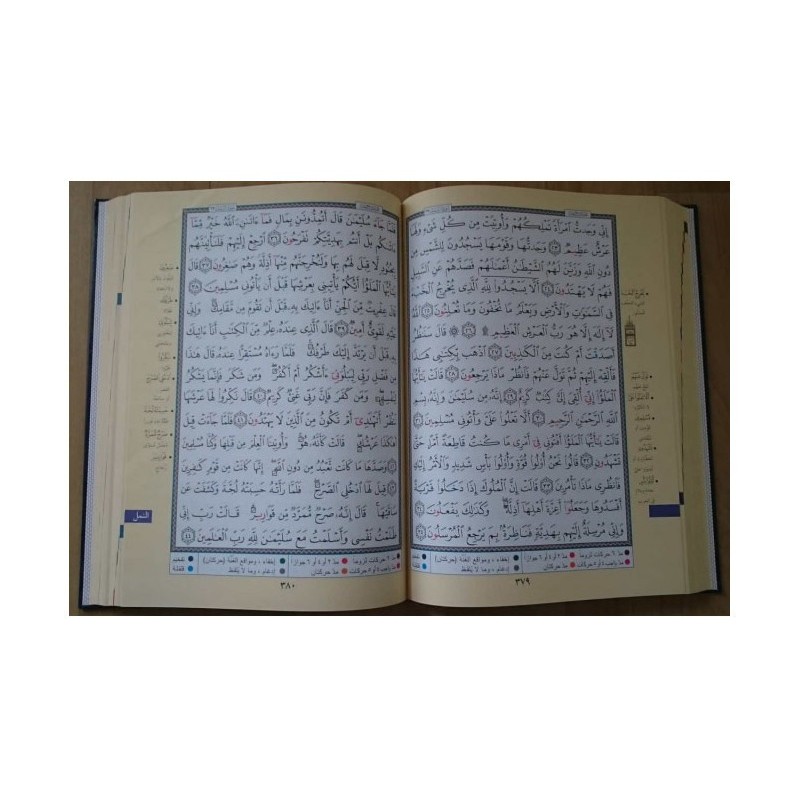 إِنِّي وَجَدتُّ ٱمْرَأَةً تَمْلِكُهُمْ وَأُوتِيَتْ مِن كُلِّ شَيْءٍ وَلَهَا
عَرْشٌ عَظِيمٌ ٢٣ وَجَدتُّهَا وَقَوْمَهَا يَسْجُدُونَ لِلشَّمْسِ مِن
دُونِ ٱللَّهِ وَزَيَّنَ لَهُمُ ٱلشَّيْطَٰنُ أَعْمَٰلَهُمْ فَصَدَّهُمْ عَنِ ٱلسَّبِيلِ
فَهُمْ لَا يَهْتَدُونَ ٢٤ أَلَّا يَسْجُدُوا۟ لِلَّهِ ٱلَّذِي يُخْرِجُ ٱلْخَبْءَ
فِي ٱلسَّمَٰوَٰتِ وَٱلْأَرْضِ وَيَعْلَمُ مَا تُخْفُونَ وَمَا تُعْلِنُونَ ٢٥ ٱللَّهُ
لَآ إِلَٰهَ إِلَّا هُوَ رَبُّ ٱلْعَرْشِ ٱلْعَظِيمِ ۩ ٢٦ ۞ قَالَ سَنَنظُرُ
أَصَدَقْتَ أَمْ كُنتَ مِنَ ٱلْكَٰذِبِينَ ٢٧ ٱذْهَب بِّكِتَٰبِي هَٰذَا
فَأَلْقِهْ إِلَيْهِمْ ثُمَّ تَوَلَّ عَنْهُمْ فَٱنظُرْ مَاذَا يَرْجِعُونَ ٢٨ قَالَتْ يَٰٓأَيُّهَا
ٱلْمَلَؤُا۟ إِنِّيٓ أُلْقِيَ إِلَيَّ كِتَٰبٌ كَرِيمٌ ٢٩ إِنَّهُۥ مِن سُلَيْمَٰنَ وَإِنَّهُۥ بِسْمِ
ٱللَّهِ ٱلرَّحْمَٰنِ ٱلرَّحِيمِ ٣٠ أَلَّا تَعْلُوا۟ عَلَيَّ وَأْتُونِي مُسْلِمِينَ ٣١
قَالَتْ يَٰٓأَيُّهَا ٱلْمَلَؤُا۟ أَفْتُونِي فِيٓ أَمْرِي مَا كُنتُ قَاطِعَةً أَمْرًا حَتَّىٰ
تَشْهَدُونِ ٣٢ قَالُوا۟ نَحْنُ أُو۟لُوا۟ قُوَّةٍ وَأُو۟لُوا۟ بَأْسٍ شَدِيدٍ وَٱلْأَمْرُ إِلَيْكِ
فَٱنظُرِي مَاذَا تَأْمُرِينَ ٣٣ قَالَتْ إِنَّ ٱلْمُلُوكَ إِذَا دَخَلُوا۟ قَرْيَةً
أَفْسَدُوهَا وَجَعَلُوٓا۟ أَعِزَّةَ أَهْلِهَآ أَذِلَّةً وَكَذَٰلِكَ يَفْعَلُونَ ٣٤
وَإِنِّي مُرْسِلَةٌ إِلَيْهِم بِهَدِيَّةٍ فَنَاظِرَةٌۢ بِمَ يَرْجِعُ ٱلْمُرْسَلُونَ ٣٥
٣٧٩
فَلَمَّا جَآءَ سُلَيْمَٰنَ قَالَ أَتُمِدُّونَنِ بِمَالٍ فَمَآ ءَاتَىٰنِۦَ ٱللَّهُ خَيْرٌ مِّمَّآ
ءَاتَىٰكُم بَلْ أَنتُم بِهَدِيَّتِكُمْ تَفْرَحُونَ ٣٦ ٱرْجِعْ إِلَيْهِمْ فَلَنَأْتِيَنَّهُم
بِجُنُودٍ لَّا قِبَلَ لَهُم بِهَا وَلَنُخْرِجَنَّهُم مِّنْهَآ أَذِلَّةً وَهُمْ صَٰغِرُونَ ٣٧
قَالَ يَٰٓأَيُّهَا ٱلْمَلَؤُا۟ أَيُّكُمْ يَأْتِينِي بِعَرْشِهَا قَبْلَ أَن يَأْتُونِي مُسْلِمِينَ ٣٨
قَالَ عِفْرِيتٌ مِّنَ ٱلْجِنِّ أَنَا۠ ءَاتِيكَ بِهِۦ قَبْلَ أَن تَقُومَ مِن مَّقَامِكَ وَإِنِّي
عَلَيْهِ لَقَوِيٌّ أَمِينٌ ٣٩ قَالَ ٱلَّذِي عِندَهُۥ عِلْمٌ مِّنَ ٱلْكِتَٰبِ أَنَا۠ ءَاتِيكَ
بِهِۦ قَبْلَ أَن يَرْتَدَّ إِلَيْكَ طَرْفُكَ فَلَمَّا رَءَاهُ مُسْتَقِرًّا عِندَهُۥ قَالَ هَٰذَا
مِن فَضْلِ رَبِّي لِيَبْلُوَنِيٓ ءَأَشْكُرُ أَمْ أَكْفُرُ وَمَن شَكَرَ فَإِنَّمَا يَشْكُرُ
لِنَفْسِهِۦ وَمَن كَفَرَ فَإِنَّ رَبِّي غَنِيٌّ كَرِيمٌ ٤٠ قَالَ نَكِّرُوا۟ لَهَا عَرْشَهَا
نَنظُرْ أَتَهْتَدِيٓ أَمْ تَكُونُ مِنَ ٱلَّذِينَ لَا يَهْتَدُونَ ٤١ فَلَمَّا جَآءَتْ قِيلَ
أَهَٰكَذَا عَرْشُكِ قَالَتْ كَأَنَّهُۥ هُوَ وَأُوتِينَا ٱلْعِلْمَ مِن قَبْلِهَا وَكُنَّا مُسْلِمِينَ
٤٢ وَصَدَّهَا مَا كَانَت تَّعْبُدُ مِن دُونِ ٱللَّهِ إِنَّهَا كَانَتْ مِن قَوْمٍ كَٰفِرِينَ
٤٣ قِيلَ لَهَا ٱدْخُلِي ٱلصَّرْحَ فَلَمَّا رَأَتْهُ حَسِبَتْهُ لُجَّةً وَكَشَفَتْ عَن
سَاقَيْهَا قَالَ إِنَّهُۥ صَرْحٌ مُّمَرَّدٌ مِّن قَوَارِيرَ قَالَتْ رَبِّ إِنِّي
ظَلَمْتُ نَفْسِي وَأَسْلَمْتُ مَعَ سُلَيْمَٰنَ لِلَّهِ رَبِّ ٱلْعَٰلَمِينَ ٤٤
النمل
٣٨٠